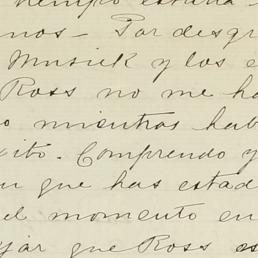 tiempo estaria
nos - Por desgr
Musick y los e
Ross no me ha
o mientras hab
xito. Comprendo y
que has estad
el momento en
jar que Ross es